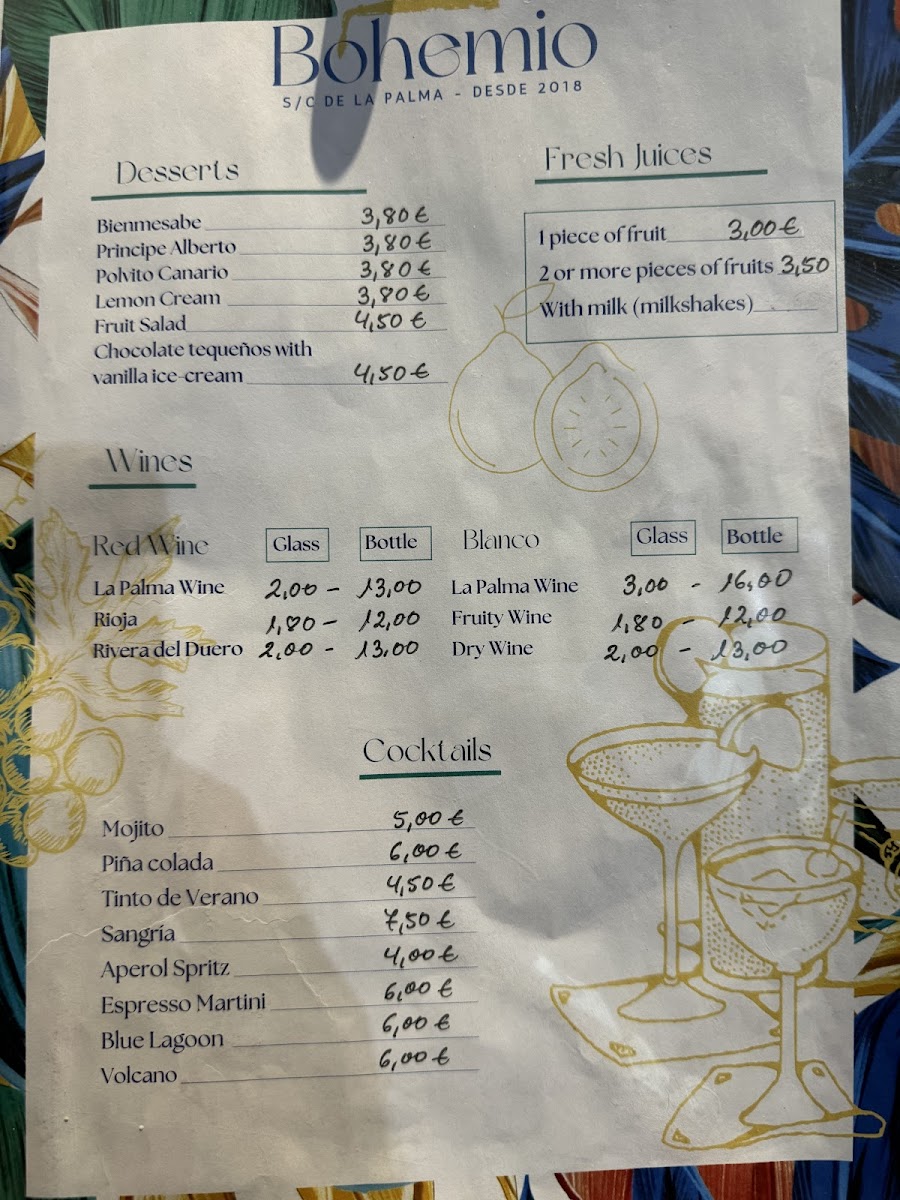 Bohemio
S/C DE LA PALMA - DESDE 2018
Desserts
Bienmesabe 3,80 €
Principe Alberto 3,80 €
Polvito Canario 3,80 €
Lemon Cream 3,80 €
Fruit Salad 4,50 €
Chocolate tequeños with
vanilla ice-cream 4,50 €
Fresh Juices
1 piece of fruit 3,00 €
2 or more pieces of fruits 3,50
With milk (milkshakes)
Wines
Red Wine Glass Bottle
La Palma Wine 2,00 - 13,00
Rioja 1,80 - 12,00
Rivera del Duero 2,00 - 13,00
Blanco Glass Bottle
La Palma Wine 3,00 - 16,00
Fruity Wine 1,80 - 12,00
Dry Wine 2,00 - 13,00
Cocktails
Mojito 5,00 €
Piña colada 6,00 €
Tinto de Verano 4,50 €
Sangría 7,50 €
Aperol Spritz 4,00 €
Espresso Martini 6,00 €
Blue Lagoon 6,00 €
Volcano 6,00 €